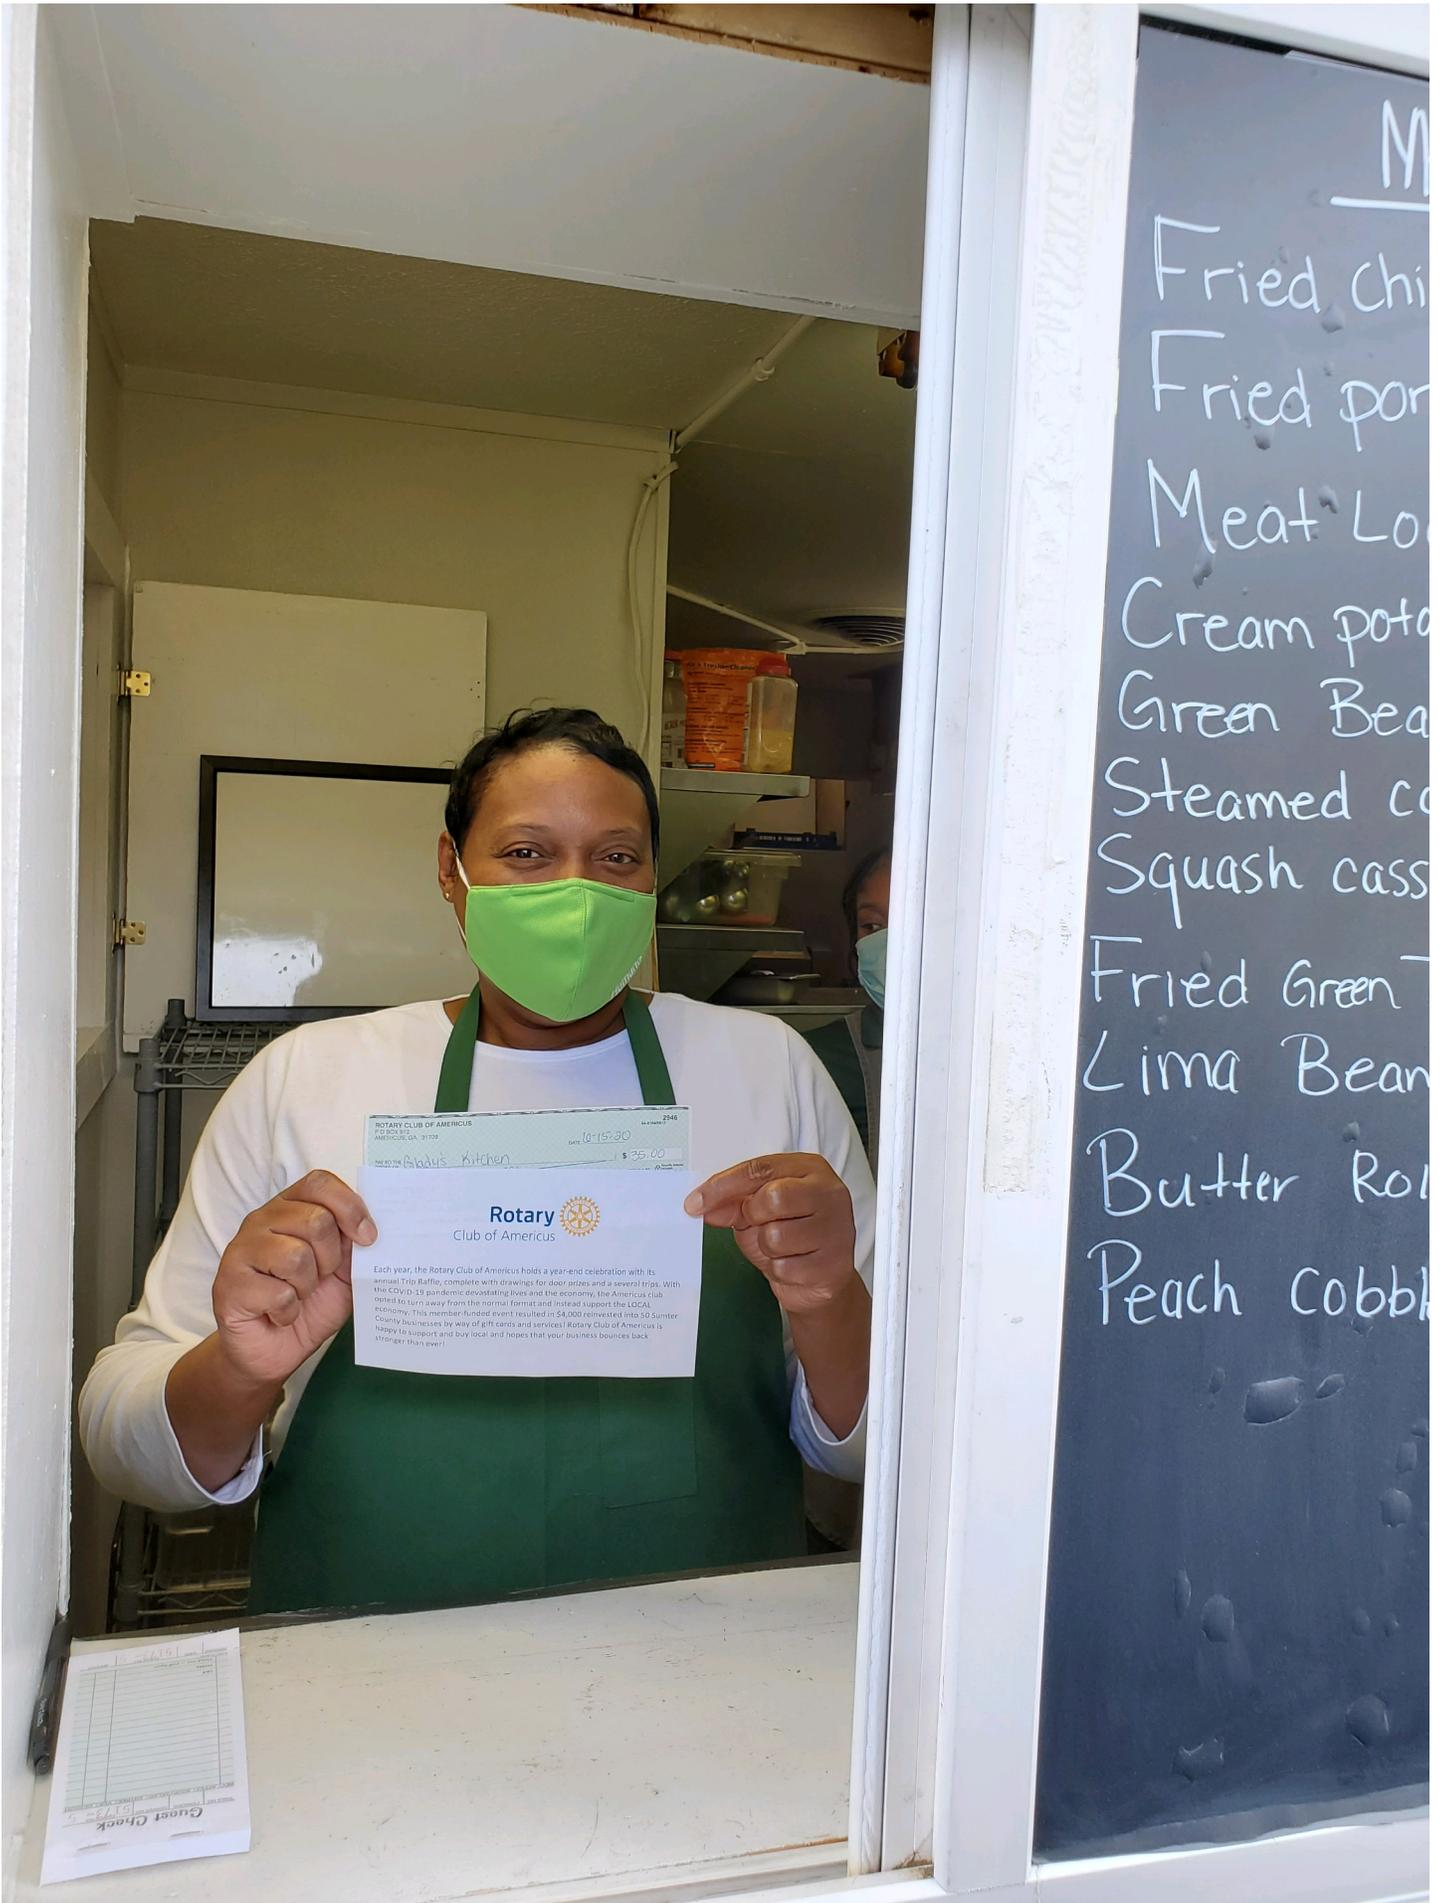 ROTARY CLUB OF AMERICUS
P O BOX 912
AMERICUS, GA 31709
2946
DATE 6-15-20
PAY TO THE Gladys Kitchen $ 35.00
Rotary
Club of Americus
Each year, the Rotary Club of Americus holds a year-end celebration with its
annual Trip Raffle, complete with drawings for door prizes and a several trips. With
the COVID-19 pandemic devastating lives and the economy, the Americus club
opted to turn away from the normal format and instead support the LOCAL
economy. This member-funded event resulted in $4,000 reinvested into 50 Sumter
County businesses by way of gift cards and services! Rotary Club of Americus is
happy to support and buy local and hopes that your business bounces back
stronger than ever!
Guest Check
M
Fried chi
Fried por
Meat Lo
Cream pota
Green Bea
Steamed c
Squash cass
Fried Green T
Lima Bean
Butter Rol
Peach cobbl